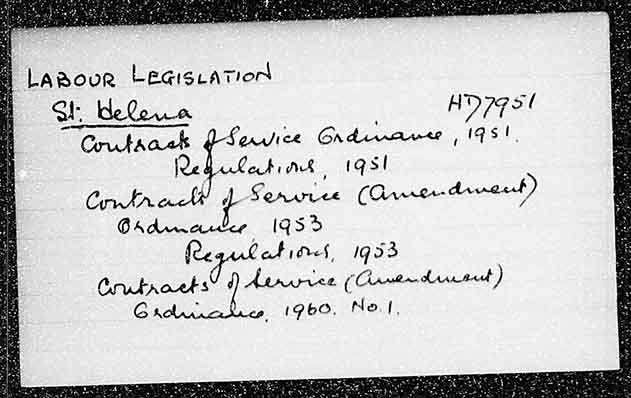 LABOUR LEGISLATION
St. Helena HD7951
Contracts of Service Ordinance, 1951.
Regulations, 1951
Contracts of Service (Amendment)
Ordinance 1953
Regulations, 1953
Contracts of Service (Amendment)
Ordinance. 1960. No.1.